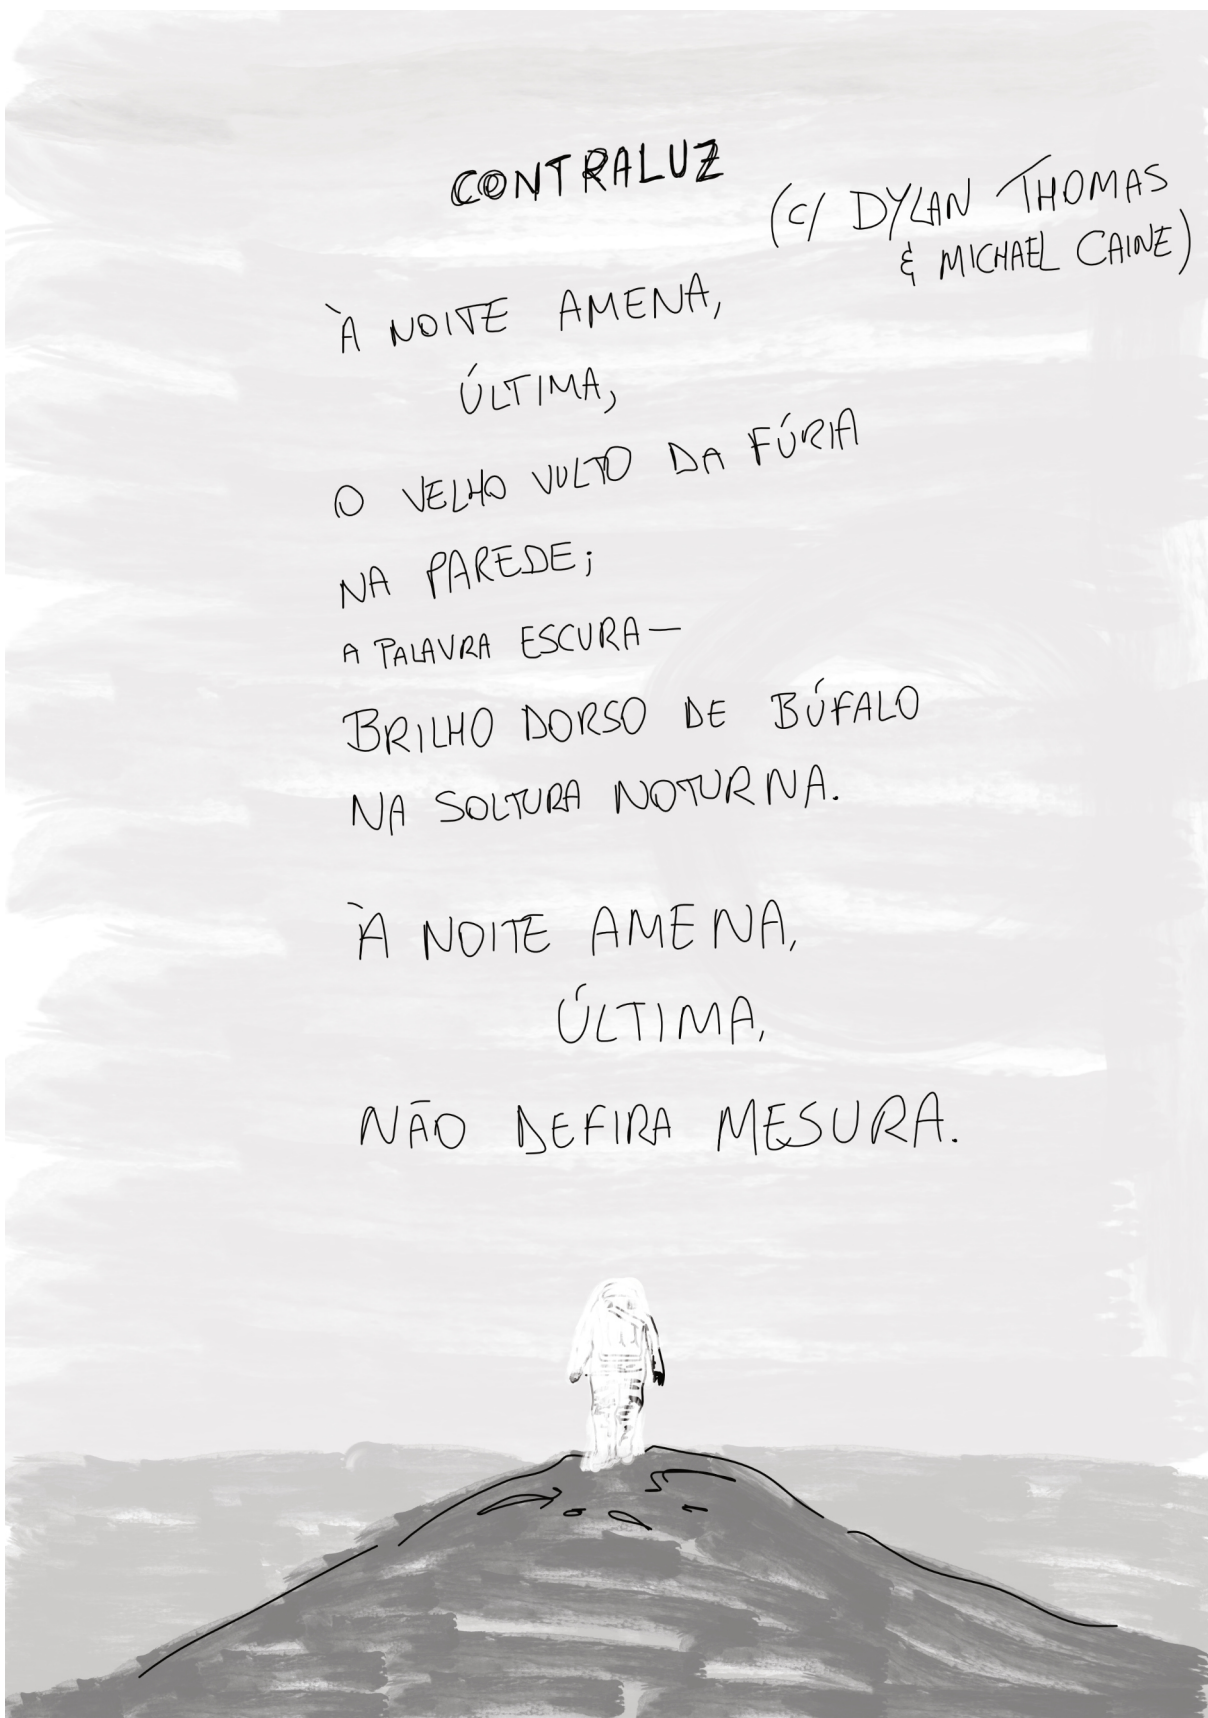 CONTRALUZ
(C/ DYLAN THOMAS
& MICHAEL CAINE)
À NOITE AMENA,
ÚLTIMA,
O VELHO VULTO DA FÚRIA
NA PAREDE;
A PALAVRA ESCURA—
BRILHO DORSO DE BÚFALO
NA SOLTURA NOTURNA.
À NOITE AMENA,
ÚLTIMA,
NÃO DEFIRA MESURA.